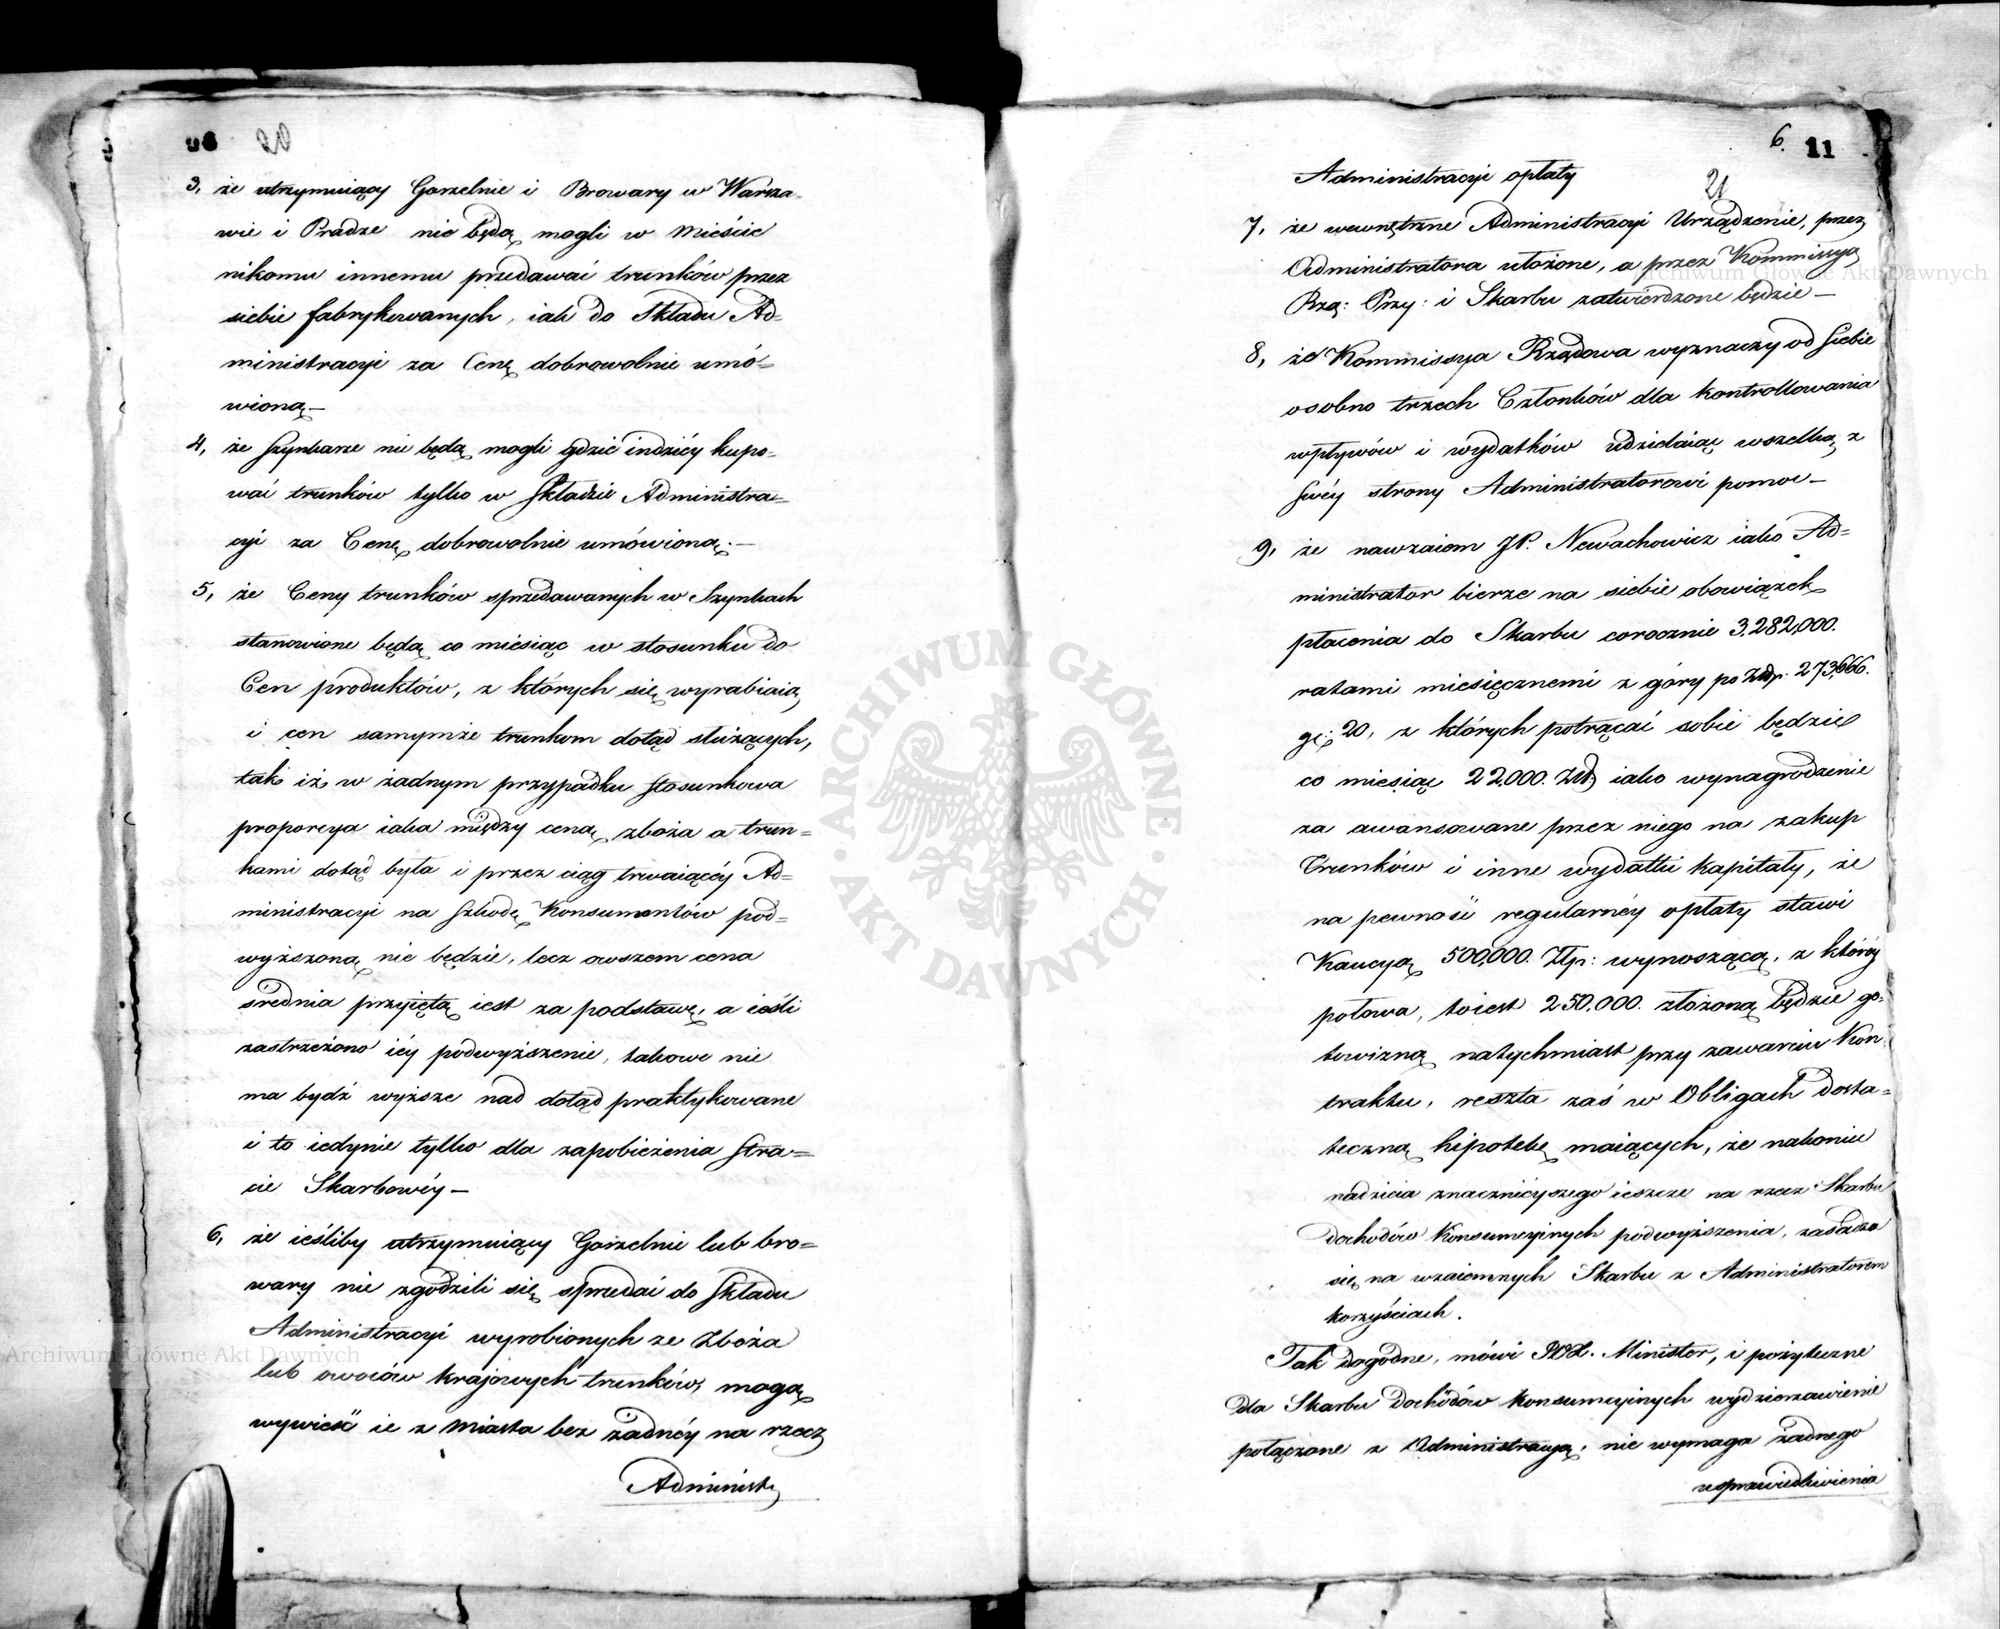 20
3, że utrzymuiący Gorzelnie i Browary w Warsza-
wie i Pradze nie będą mogli w Mieście
nikomu innemu przedawać trunków przez
siebie fabrykowanych, iak do Składu Ad-
ministracyi za Cenę dobrowolnie umó-
wioną –
4, że Szynkarze nie będą mogli gdzie indziéy kupo-
wać trunków tylko w Składzie Administra-
cyi za Cenę dobrowolnie umówioną. –
5, że Ceny trunków sprzedawanych w Szynkach
stanowione będą co miesiąc w stosunku do
Cen produktów, z których się wyrabiaią
i cen samymże trunkom dotąd służących,
tak iż w żadnym przypadku stosunkowa
proporcya iaka między ceną zboża a trun-
kami dotąd była i przez ciąg trwaiącéy Ad-
ministracyi na szkodę Konsumentów pod-
wyższoną nie będzie, lecz owszem cena
średnia przyiętą iest za podstawę, a ieśli
zastrzeżono iéy podwyższenie, takowe nie
ma bydź wyższe nad dotąd praktykowane
i to iedynie tylko dla zapobieżenia stra-
cie Skarbowéy –
6, że ieśliby utrzymuiący Gorzelnie lub bro-
wary nie zgodzili się sprzedać do Składu
Administracyi wyrobionych ze Zboża
lub owoców krajowych trunków, mogą
wywieść ie z Miasta bez żadnéy na rzecz
Administ
6. 11
21
Administracyi opłaty
7, że wewnętrzne Administracyi Urządzenie, przez
Administratora ułożone, a przez Kommissyą
Rzą: Przy: i Skarbu zatwierdzone będzie –
8, że Kommissya Rządowa wyznaczy od siebie
osobno trzech Członków dla kontrollowania
wpływów i wydatków udzielaiąc wszelką z
swéy strony Administratorowi pomoc –
9, że nawzaiem JP. Newachowicz iako Ad-
ministrator bierze na siebie obowiązek
płacenia do Skarbu corocznie 3,282,000.
ratami miesięcznemi z góry po Złp. 273,666.
gr: 20, z których potrącać sobie będzie
co miesiąc 22,000. Złp iako wynagrodzenie
za awansowane przez niego na zakup
Trunków i inne wydatki kapitały, że
na pewność regularnéy opłaty stawi
Kaucyą 500,000. Złp: wynoszącą, z któréy
połowa, toiest 250,000. złożoną będzie go-
towizną natychmiast przy zawarciu Kon-
traktu, reszta zaś w Obligach dosta-
teczną hipotekę maiących, że nakoniec
nadzieia znacznieyszego ieszcze na rzecz Skarbu
Dochodów Konsumcyinych podwyższenia, zasadza
się na wzaiemnych Skarbu z Administratorem
korzyściach.
Tak dogodne, mówi JW. Minister, i pożyteczne
dla Skarbu Dochodów konsumcyinych wydzierzawienie
połączone z Administracyą, nie wymaga żadnego
usprawiedliwienia
ARCHIWUM GŁÓWNE · AKT DAWNYCH ·
Archiwum Główne Akt Dawnych
Archiwum Główne Akt Dawnych